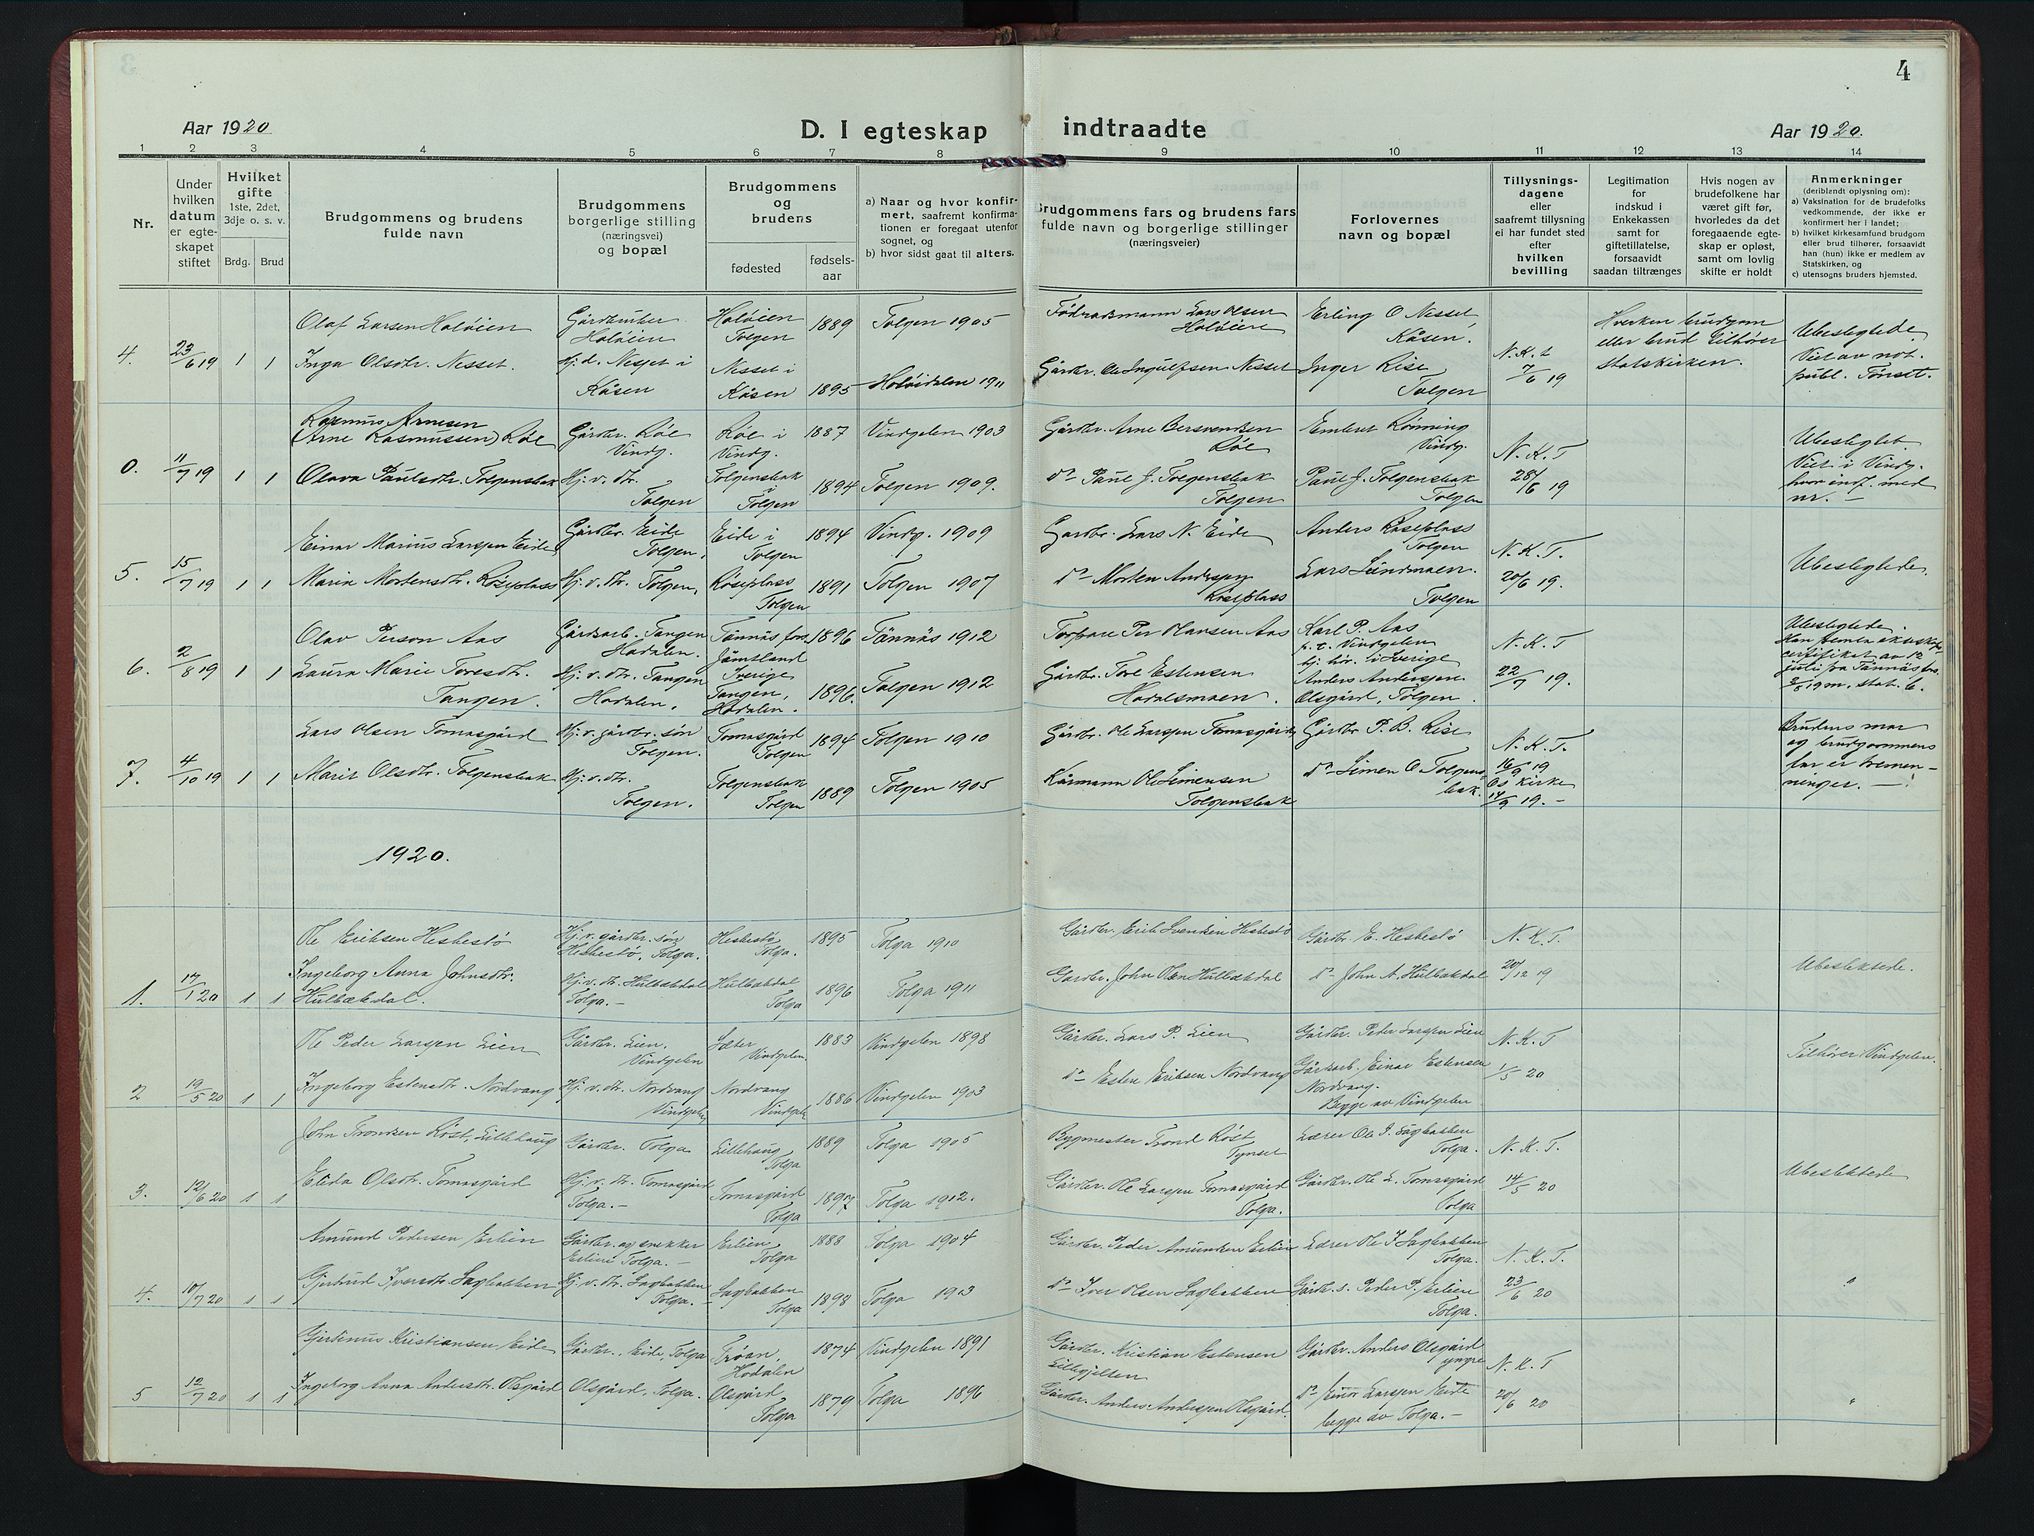 4
Aar 1920
D. I egteskap indtraadte
Aar 1920.
1 2 3 4 5 6 7 8 9 10 11 12 13 14
Nr.
Under hvilken datum er egteskapet stiftet
Hvilket gifte 1ste, 2det, 3dje o. s. v.
Brdg. Brud
Brudgommens og brudens fulde navn
Brudgommens borgerlige stilling (næringsvei) og bopæl
Brudgommens og brudens
fødested
fødsels-aar
a) Naar og hvor konfirmert, saafremt konfirmationen er foregaat utenfor sognet, og
b) hvor sidst gaat til alters.
Brudgommens fars og brudens fars fulde navn og borgerlige stillinger (næringsveier)
Forlovernes navn og bopæl
Tillysningsdagene eller saafremt tillysning ei har fundet sted efter hvilken bevilling
Legitimation for indskud i Enkekassen samt for giftetillatelse, forsaavidt saadan tiltrænges
Hvis nogen av brudefolkene har været gift før, hvorledes da det foregaaende egteskap er opløst, samt om lovlig skifte er holdt
Anmerkninger
(deriblandt oplysning om):
a) Vaksination for de brudefolks vedkommende, der ikke er konfirmert her i landet;
b) hvilket kirkesamfund brudgom eller brud tilhører, forsaavidt han (hun) ikke er medlem av Statskirken, og
c) utensogns bruders hjemsted.
4. 23/6 19 1 1
Olaf Larsen Holøien Gårdbruker Holøien Holøien Tolgen 1889 Tolgen 1905 Lars Olsen Holøien Erling O. Nesset Kåsen.
Inga Olsdtr. Nesset. Hj. d. Nesset i Kåsen Nesset i Kåsen 1895 Holøidalen 1911 Gårdbr. Ole Ingulfsen Nesset Inger Rise Tolgen
N. K. T. 7/6 19
Hverken brudgom eller brud tilhører statskirken.
Ubeslegtede. Viet av not. publ. Tønset.
0. 11/7 19 1 1
Rasmus Arnesen (Arne Rasmussen) Røe Gårdbr. Røe Vindg. Røe i Vindg. 1887 Vindgelen 1903 Gårdbr. Arne Bersvendsen Røe Embret Rønning Vindg.
Olava Paulsdtr. Tolgensbak Hj. v. dtr. Tolgen Tolgensbak i Tolgen 1894 Tolgen 1909. do Paul J. Tolgensbak Tolgen Paul J. Tolgensbak Tolgen
N. K. T 28/6 19
Ubeslegtet Viet i Vindg. hvor indf. med nr. —
5. 15/7 19 1 1
Einar Marius Larssen Eide Gårdbr. Eide Tolgen. Eide i Tolgen 1894 Vindg. 1909 Gardbr. Lars N. Eide Anders Røseplass Tolgen
Marie Mortensdtr. Røseplass Hj. v. dtr. Tolgen. Røseplass Tolgen 1891 Tolgen 1907 do Morten Andersen Røseplass Lars Lundmoen. Tolgen
N. K. T. 20/6 19.
Ubeslegtede.
6. 2/8 19 1 1
Olav Person Aas Gårdsarb. Tangen Hodalen. Tännäs fors. Jämtland Sverige 1896 Tännäs 1912 Torpare Per Olausen Aas Karl P. Aas p. t. Vindgelen hj. hør. i Sverige
Laura Marie Toresdtr. Tangen. Hj. v. dtr. Tangen Hodalen. Tangen, Hodalen. 1896. Tolgen 1912 Gårdbr. Tore Estensen Hodalsmoen. Anders Anderssen. Olsgård, Tolgen.
N. K. T 22/7 19.
Ubeslegtede.
7. 4/10 19 1 1
Lars Olsen Tomasgård Hj. v. gårdbr. søn Tolgen. Tomasgård Tolgen 1894 Tolgen 1910 Gårdbr. Ole Larssen Tomasgård Gårdbr P. B. Rise
Marit Olsdtr. Tolgensbak Hj. v. dtr. Tolgen. Tolgensbak Tolgen 1889 Tolgen 1905 Kårmann Ole Simensen Tolgensbak do Simen O Tolgensbak.
N. K. T. 16/9 19 Os Kirke 14/9 19. —
Brudens mor og brudgommens far er tremenninger. —
1920.
1. 17/1 20 1 1
Ole Eriksen Hesbestø Hj. v. gårdbr. søn Hesbestø, Tolga. Hesbestø Tolga. 1895 Tolga 1910 Gårdbr. Erik Svendsen Hesbestø Gårdbr. E. Hesbestø
Ingeborg Anna Johnsdtr. Hulbækdal. Hj. v. dtr. Hulbækdal Tolga. — Hulbækdal Tolga 1896 Tolga 1911 Gardbr. John Olsen Hulbækdal do John A. Hulbækdal
N. K. T. 20/12 19
Ubeslektede.
2 19/5 20 1 1
Ole Peder Larssen Lien Gårdbr. Lien, Vindgelen Sæter Vindgelen. 1883 Vindgelen 1898 Gårdbr. Lars P. Lien Gårdbr. Peder Larssen Lien
Ingeborg Estensdtr. Nordvang Hj. v. dtr. Nordvang Vindgelen Nordvang Vindgelen 1886 Vindgelen 1903 do Esten Eriksen Nordvang Gårdsarb. Einar Estensen Nordvang. Begge av Vindgelen
N. K. T 1/5 20
Tilhører Vindgelen.
3. 12/6 20 1 1
John Trondsen Røst, Lillehaug Gårdbr. Tolga Lillehaug Tolga 1889 Tolga 1905 Bygmester Trond Røst Tynset Lærer Ole I. Sagbakken Tolga.
Elida Olsdtr. Tomasgård Hj. v. dtr. Tomasgård Tolga. — Tomasgård Tolga 1897 Tolga 1912. Gårdbr. Ole Larssen Tomasgård Tolga. Gårdbr. Ole L. Tomasgård Tolga
N. K. T. 14/5 20
Ubeslektede
4. 10/7 20 1 1
Amund Pedersen Erlien Gårdbr. og snekker Erlien Tolga. — Erlien Tolga 1888 Tolga 1904 Gårdbr. Peder Amundsen Erlien Lærer Ole I Sagbakken Tolga.
Gjertrud Iversdtr Sagbakken Hj. v. dtr. Sagbakken Tolga. — Sagbakken Tolga 1898 Tolga 1913 do Iver Olsen Sagbakken Gårdbr. s. Peder P. Erlien Tolga.
N. K. T. 23/6 20
"
5 12/7 20 1 1
Gjertinus Kristiansen Eide Gårdbr., Eide, Tolga Trøan, Hodalen 1874 Vindgelen 1891 Gårdbr. Kristian Estensen Gårdbr. Anders Olsgård yngre
Ingeborg Anna Andersdtr. Olsgård Olsgård, Tolga. Olsgård Tolga 1879 Tolga 1896 Gårdbr. Anders Anderssen Olsgård. do Einar Larssen Eide begge av Tolga. —
N. K. T 20/6 20
"